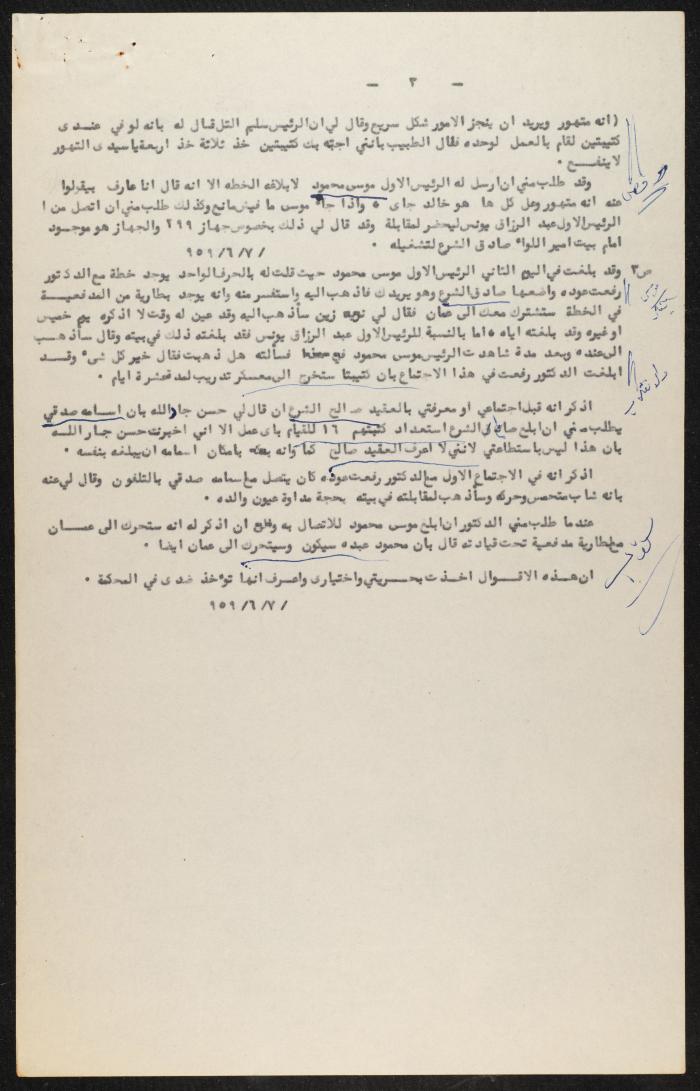 - ٣ -
(انه متهور ويريد ان ينجز الامور بشكل سريع وقال لي ان الرئيس سليم التل قال له بانه لو في عندى
كتيبتين لقام بالعمل لوحده فقال الطبيب بانني اجيئه بك كتيبتين خذ ثلاثة خذ اربعة ياسيدى التهور
لا ينفع .
وقد طلب مني ان ارسل له الرئيس الاول موسى محمود لابلاغه الخطه الا انه قال انا عارف بيقولوا
عنه انه متهور وعلى كل ها هو خالد جاى ٥ واذا جاء موسى ما فيش مانع وكذلك طلب مني ان اتصل من ا
الرئيس الاول عبد الرزاق يونس ليحضر لمقابلة وقد قال لي ذلك بخصوص جهاز ٢٩٩ والجهاز هو موجود
امام بيت امير اللواء صادق الشرع لتشغيله . ٩٥٩/٦/٧/
ص٣ وقد بلغت في اليوم الثاني الرئيس الاول موسى محمود حيث قلت له بالحرف الواحد يوجد خطة مع الدكتور
رفعت عوده واضعها صادق الشرع وهو يريدك فاذهب اليه واستفسر منه وانه يوجد بطارية من المدفعية
في الخطة ستشترك معك الى عمان فقال لي زين سأذهب اليه وقد عين له وقت لا اذكره يوم خميس
او غيره وقد بلغته اياه ٥ اما بالنسبة للرئيس الاول عبد الرزاق يونس فقد بلغته ذلك في بيته وقال سأذهب
الى عنده وبعد مدة شاهدت الرئيس موسى محمود فسألته هل ذهبت فقال خير كل شيء وقد
ابلغت الدكتور رفعت في هذا الاجتماع بان كتيبتنا ستخرج الى معسكر تدريب لمدة عشرة ايام .
اذكر انه قبل اجتماعي او معرفتي بالعقيد صالح الشرع ان قال لي حسن جارالله بان اسامه صدقي
يطلب مني ان ابلغ صالح الشرع استعداد كتيبتهم ١٦ للقيام باى عمل الا اني اخبرت حسن جار الله
بان هذا ليس باستطاعتي لانني لا اعرف العقيد صالح كما وانه بامكان اسامه ان يبلغه بنفسه .
اذكر انه في الاجتماع الاول مع الدكتور رفعت عوده كان يتصل مع اسامه صدقي بالتلفون وقال لي عنه
بانه شاب متحمس وحركه وسأذهب لمقابلته في بيته بحجة مداوة عيون والده .
عندما طلب مني الدكتور ان ابلغ موسى محمود للاتصال به ان اذكر له انه ستحرك الى عمان
مع بطارية مدفعية تحت قيادته قال بان محمود عبده سيكون وسيتحرك الى عمان ايضا .
ان هذه الاقوال اخذت بحريتي واختيارى واعرف انها تؤخذ ضدى في المحكمة .
٩٥٩/٦/٧/